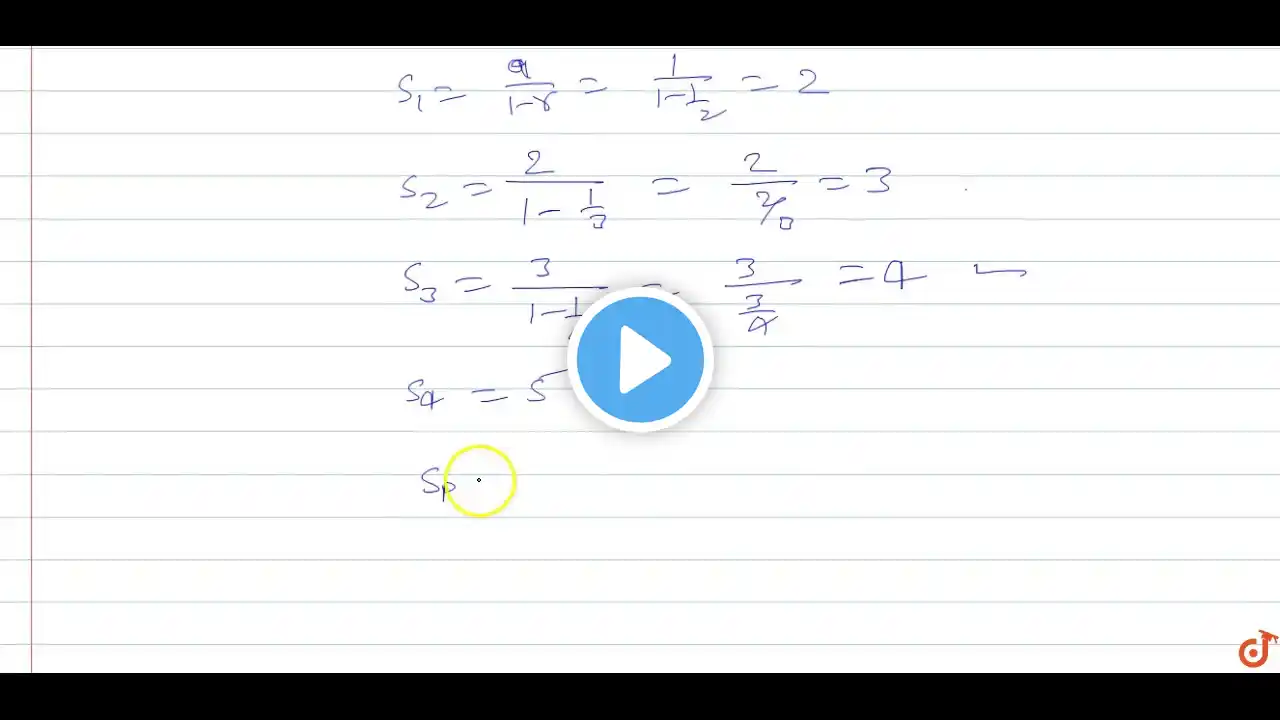 S₁ = a/(1-r) = 1/(1-1/2) = 2
S₂ = 2/(1-1/3) = 2/(2/3) = 3
S₃ = 3/(1-1/ = 3/(3/4) = 4
S₄ = 5
Sp